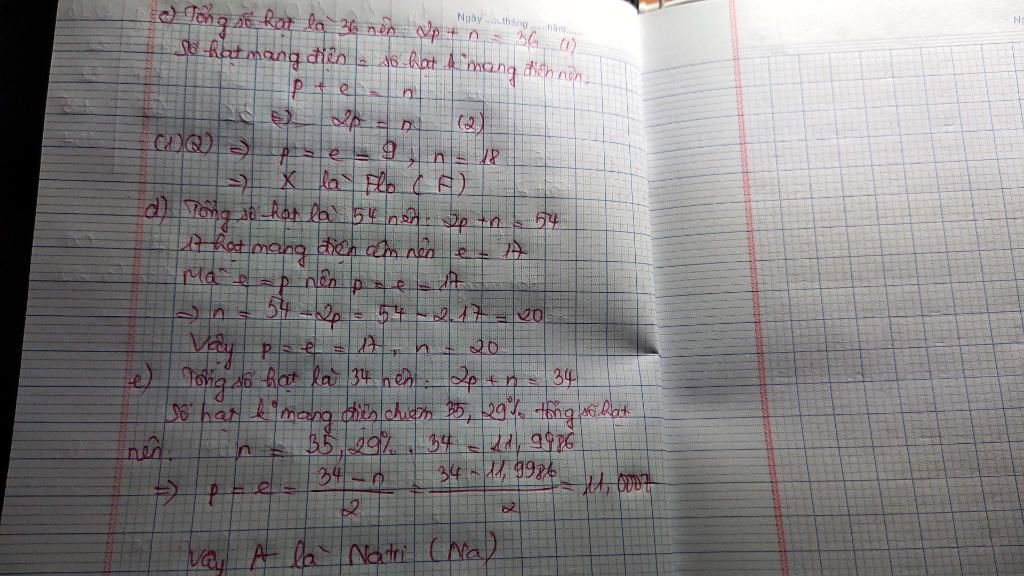 Ngày ...... tháng ...... năm ......
c) Tổng số hạt là 36 nên: 2p + n = 36 (1)
Số hạt mang điện = số hạt k° mang điện nên:
p + e = n
⇔ 2p = n (2)
(1)(2) ⇒ p = e = 9, n = 18
⇒ X là Flo (F)
d) Tổng số hạt là 54 nên: 2p + n = 54
17 hạt mang điện âm nên e = 17
Mà e = p nên p = e = 17
⇒ n = 54 - 2p = 54 - 2.17 = 20
Vậy p = e = 17, n = 20
e) Tổng số hạt là 34 nên: 2p + n = 34
Số hạt k° mang điện chiếm 35,29% tổng số hạt
nên: n = 35,29% . 34 = 11,9986
⇒ p = e = (34 - n)/2 = (34 - 11,9986)/2 = 11,0007
Vậy A là Natri (Na)